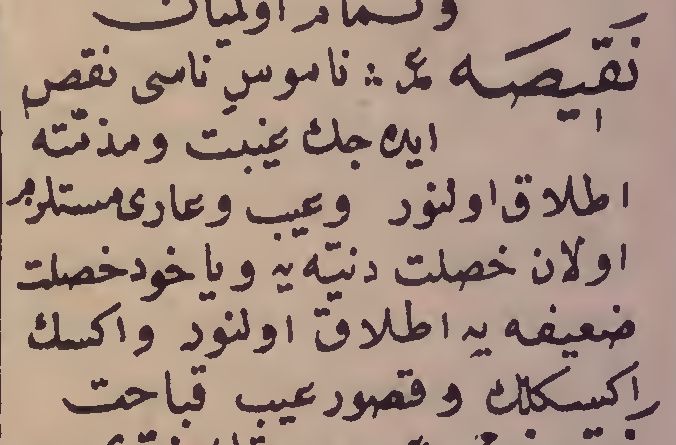 وتمام اولميان
نقيصه ع : ناموس ناسى نقص
ايده جك غيبت ومذمّته
اطلاق اولنور وعيب وعارى مستلزم
اولان خصلت دنيّه يه وياخود خصلت
ضعيفه يه اطلاق اولنور واكسك
اكسكلك وقصور عيب قباحت